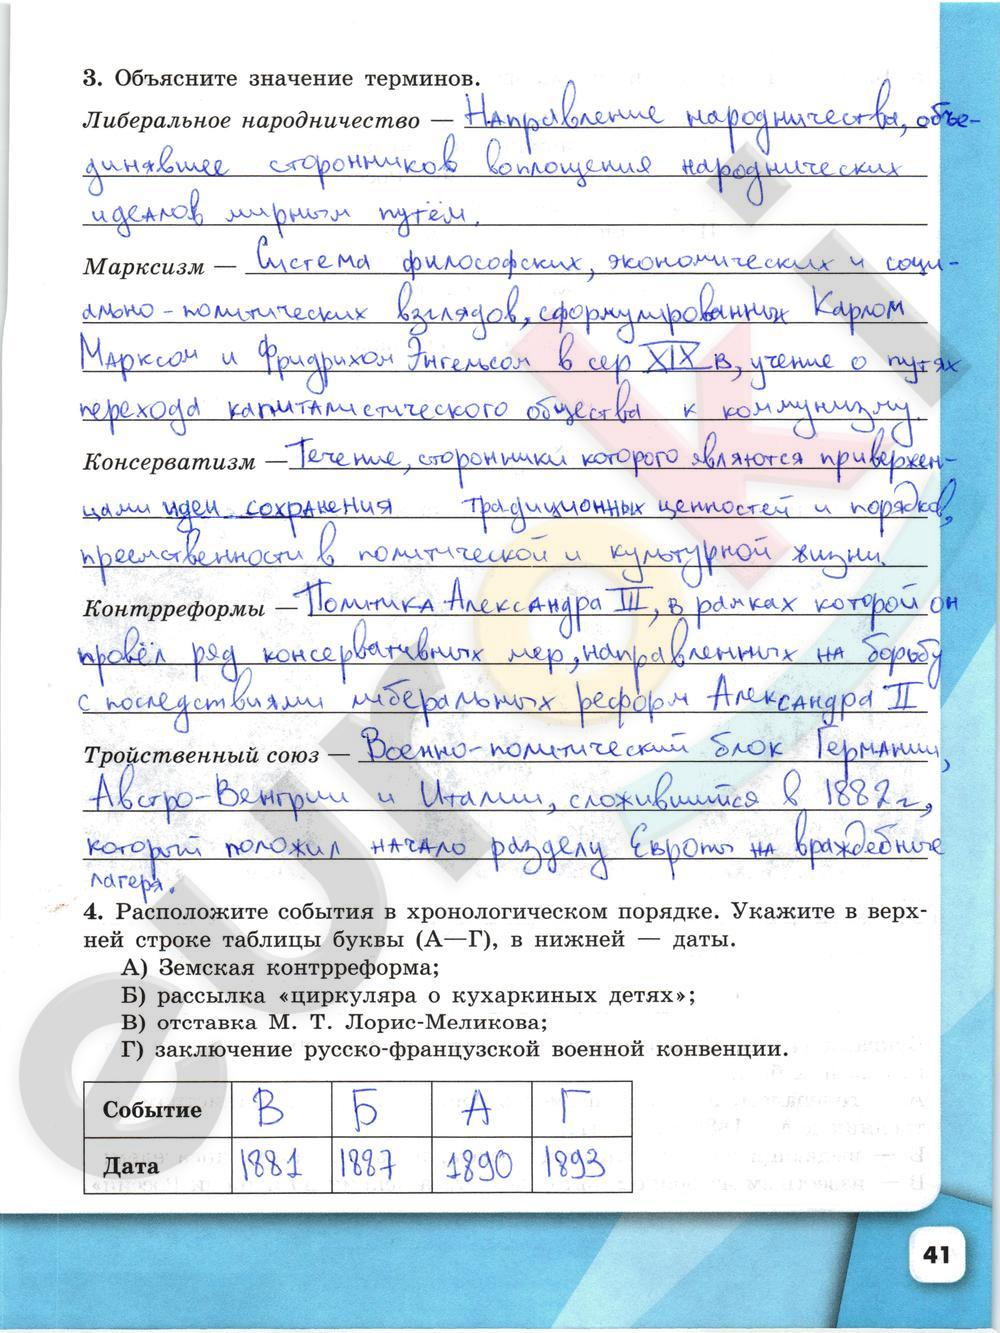 3. Объясните значение терминов.
Либеральное народничество — Направление народничества, объе-
динявшее сторонников воплощения народнических
идеалов мирным путём.
Марксизм — Система философских, экономических и соци-
ально-политических взглядов, сформулированных Карлом
Марксом и Фридрихом Энгельсом в сер XIX в, учение о путях
перехода капиталистического общества к коммунизму.
Консерватизм — Течение, сторонники которого являются привержен-
цами идеи сохранения традиционных ценностей и порядков,
преемственности в политической и культурной жизни.
Контрреформы — Политика Александра III, в рамках которой он
провёл ряд консервативных мер, направленных на борьбу
с последствиями либеральных реформ Александра II
Тройственный союз — Военно-политический блок Германии,
Австро-Венгрии и Италии, сложившийся в 1882 г,
который положил начало разделу Европы на враждебные
лагеря.
4. Расположите события в хронологическом порядке. Укажите в верх-
ней строке таблицы буквы (А—Г), в нижней — даты.
А) Земская контрреформа;
Б) рассылка «циркуляра о кухаркиных детях»;
В) отставка М. Т. Лорис-Меликова;
Г) заключение русско-французской военной конвенции.
Событие В Б А Г
Дата 1881 1887 1890 1893
41
euroki